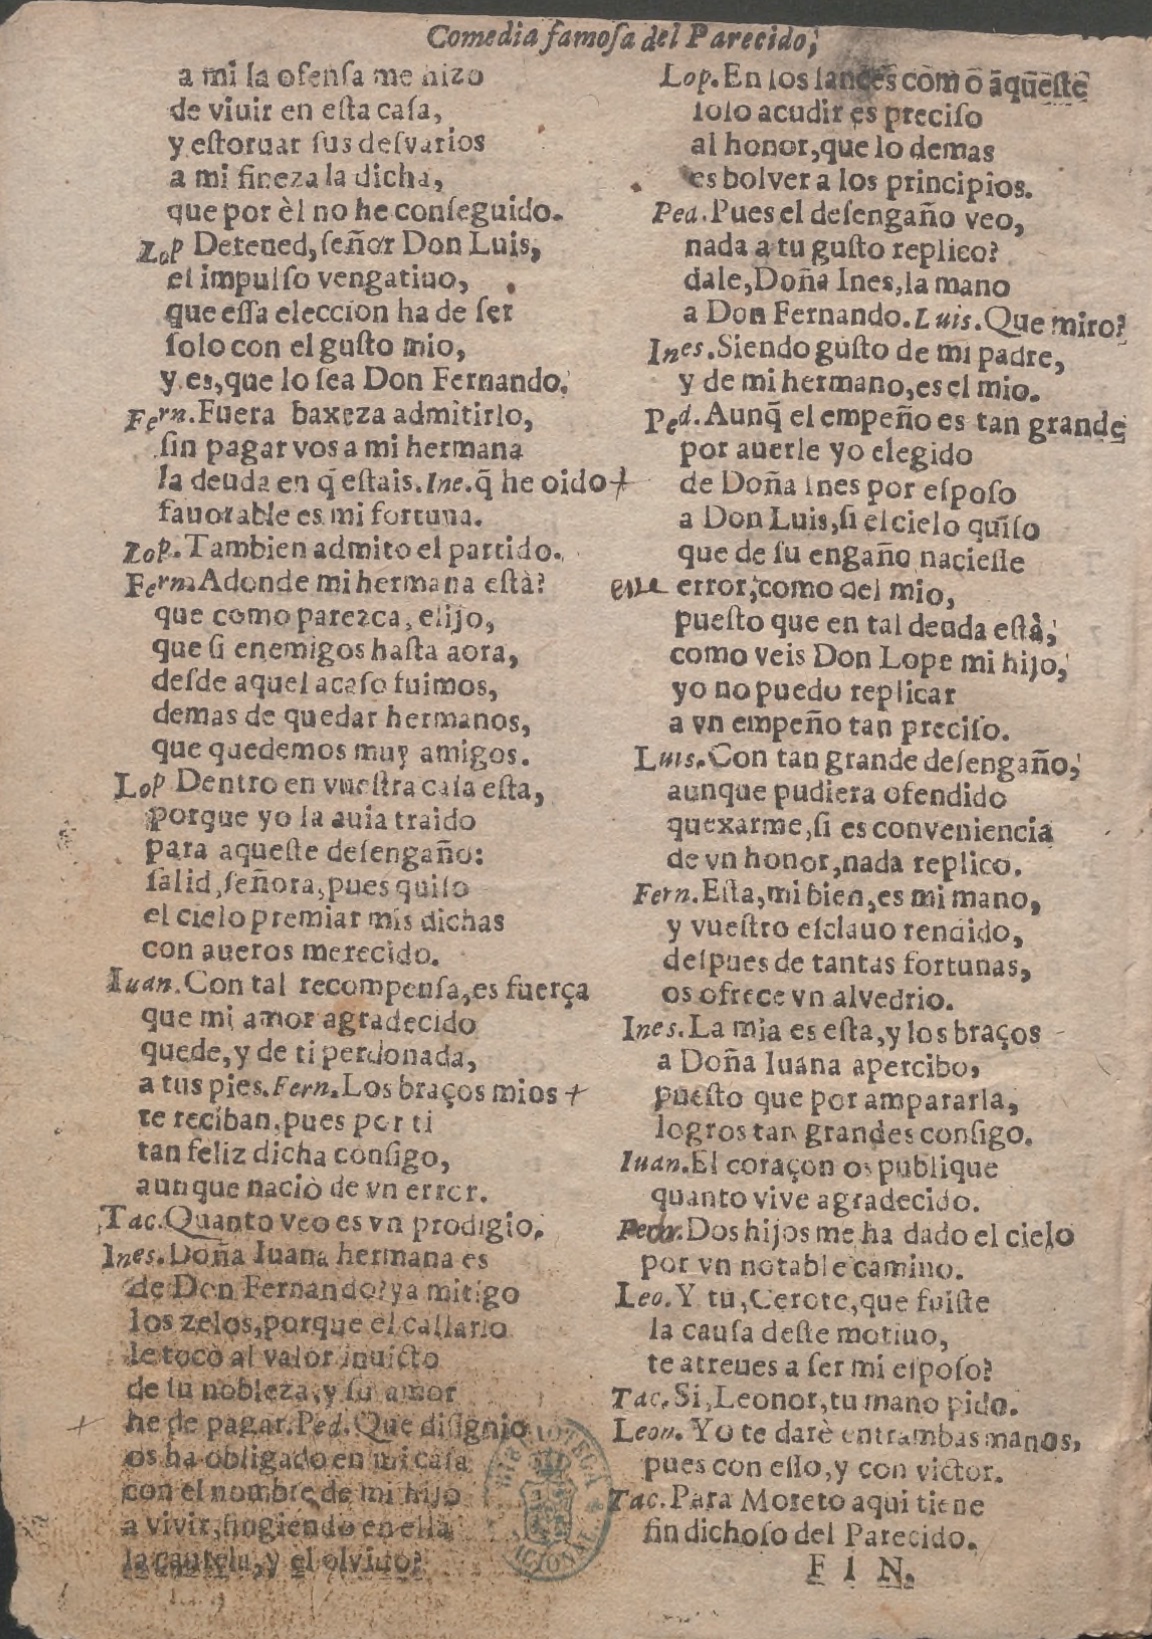 Comedia famoſa del Parecido,
a mi la ofenſa me hizo
de viuir en eſta caſa,
y eſtoruar ſus deſvarios
a mi fineza la dicha,
que por èl no he conſeguido.
Lop Deteued, ſeñor Don Luis,
el impulſo vengatiuo,
que eſſa eleccion ha de ſer
ſolo con el guſto mio,
y es, que lo ſea Don Fernando.
Fern. Fuera baxeza admitirlo,
ſin pagar vos a mi hermana
la deuda en q̃ eſtais. Ine. q̃ he oido +
fauorable es mi fortuna.
Lop. Tambien admito el partido.
Fern. Adonde mi hermana eſtà?
que como parezca, elijo,
que ſi enemigos haſta aora,
deſde aquel acaſo fuimos,
demas de quedar hermanos,
que quedemos muy amigos.
Lop Dentro en vueſtra caſa eſta,
porque yo la auia traido
para aqueſte deſengaño:
ſalid, ſeñora, pues quiſo
el cielo premiar mis dichas
con aueros merecido.
Iuan. Con tal recompenſa, es fuerça
que mi amor agradecido
quede, y de ti perdonada,
a tus pies. Fern. Los braços mios +
te reciban, pues por ti
tan feliz dicha conſigo,
aunque naciò de vn error.
Tac. Quanto veo es vn prodigio.
Ines. Doña Iuana hermana es
de Don Fernando? ya mitigo
los zelos, porque el callarlo
le tocò al valor inuicto
de ſu nobleza, y ſu amor
+ he de pagar. Ped. Que diſignio
os ha obligado en mi caſa
con el nombre de mi hijo
a vivir, fingiendo en ella
la cautela, y el olvido?
Lop. En los lances como āqueſte
ſolo acudir es preciſo
al honor, que lo demas
es bolver a los principios.
Ped. Pues el deſengaño veo,
nada a tu guſto replico?
dale, Doña Ines, la mano
a Don Fernando. Luis. Que miro?
Ines. Siendo guſto de mi padre,
y de mi hermano, es el mio.
Ped. Aunq̃ el empeño es tan grande
por auerle yo elegido
de Doña Ines por eſpoſo
a Don Luis, ſi el cielo quiſo
que de ſu engaño nacieſſe
error, como del mio,
pueſto que en tal deuda eſtà,
como veis Don Lope mi hijo,
yo no puedo replicar
a vn empeño tan preciſo.
Luis. Con tan grande deſengaño,
aunque pudiera ofendido
quexarme, ſi es conveniencia
de vn honor, nada replico.
Fern. Eſta, mi bien, es mi mano,
y vueſtro eſclauo rendido,
deſpues de tantas fortunas,
os ofrece vn alvedrio.
Ines. La mia es eſta, y los braços
a Doña Iuana apercibo,
pueſto que por ampararla,
logros tan grandes conſigo.
Iuan. El coraçon os publique
quanto vive agradecido.
Pedr. Dos hijos me ha dado el cielo
por vn notable camino.
Leo. Y tu, Cerote, que fuiſte
la cauſa deſte motiuo,
te atreues a ſer mi eſpoſo?
Tac. Si, Leonor, tu mano pido.
Leon. Yo te darè entrambas manos,
pues con eſſo, y con victor.
Tac. Para Moreto aqui tiene
fin dichoſo del Parecido.
F I N.
BIBLIOTECA NACIONAL